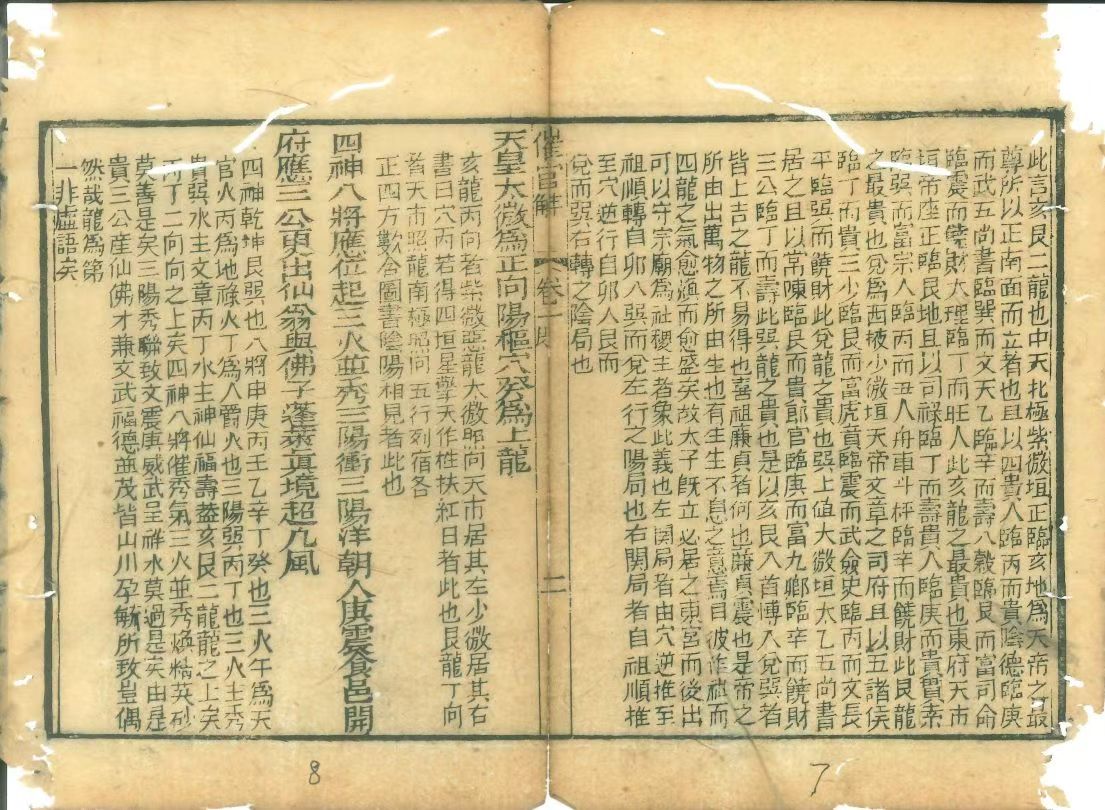 此言亥艮二龍也中天北極紫微垣正臨亥地爲天帝之最
尊所以正南面而立者也且以四貴人臨丙而貴陰德臨庚
而武五尚書臨巽而文天乙臨辛而壽八穀臨艮而富司命
臨震而饒財大理臨丁而旺人此亥龍之最貴也東府天市
垣帝座正臨艮地且以司祿臨丁而壽貴人臨庚而貴貫索
臨巽而富宗人臨丙而丑人舟車斗秤臨辛而饒財此艮龍
之最貴也兌爲西被少微垣天帝文章之司府且以五諸侯
臨丁而貴三少臨艮而富虎賁臨震而武僉史臨丙而文長
平臨巽而饒財此兌龍之貴也巽上值太微垣太乙五尚書
居之且以常陳臨艮而貴郎官臨庚而富九鄉臨辛而饒財
三公臨丁而壽此巽龍之貴也是以亥艮入首博入兌巽者
皆上吉之龍不易得也喜祖廉貞者何也廉貞震也是帝之
所由出萬物之所由生也有生生不息之意焉自彼作祖而
四龍之氣愈涵而愈盛矣故太子既立必居之東宮而後出
可以守宗廟爲社稷主者象此義也左関局者由穴逆推至
祖順轉自卯入巽而兌左行之陽局也右関局者自祖順推
至穴逆行自卯入艮而
兌而巽右轉之陰局也
催官解 卷一 二
天皇太微爲正向陽樞穴癸爲上龍
亥龍丙向者紫微惡龍大微昭向天市居其左少微居其右
書曰穴丙若得四垣星擎天作柱扶紅日者此也艮龍丁向
首天市昭龍南極昭向五行列宿各
正四方數合圖書陰陽相見者此也
四神八將應位起三火並秀三陽衝三陽洋朝入庚震食邑開
府應三公更出仙翁與佛子蓬萊眞境超凡風
四神乾坤艮巽也八將申庚丙壬乙辛丁癸也三火午爲天
官火丙爲地祿火丁爲人爵火也三陽巽丙丁也三火主秀
貴巽水主文章丙丁水主神仙福壽葢亥艮二龍龍之上矣
丙丁二向向之上矣四神八將催秀氣三火並秀煥精英砂
莫善是矣三陽秀聯致文震庚威武呈祥水莫過是矣由是
貴三公産仙佛才兼文武福德並茂皆山川孕毓所致豈偶
然哉龍爲第
一非虛語矣
8
7